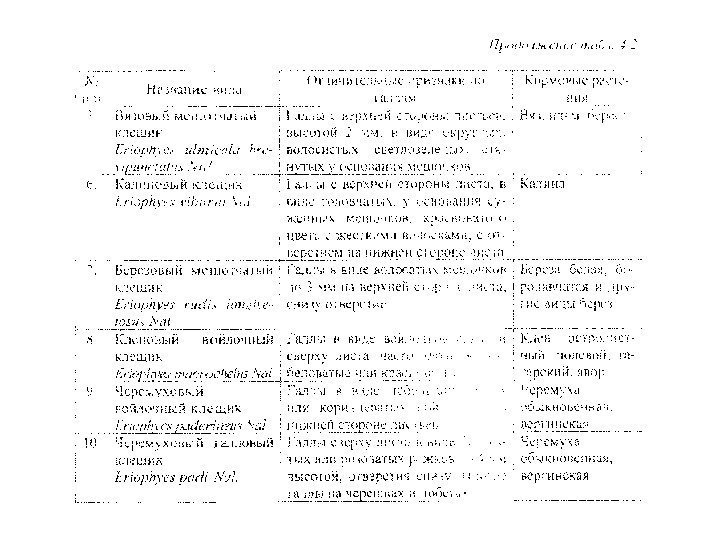 Продолжение табл. 4.2
№
Название вида
Отличительные признаки по
галлам
Кормовые расте-
ния
Вязовый мешотчатый
клещик
Eriophyes ulmicola bre-
vipunctatus Nal.
Галлы с верхней стороны листьев,
высотой 2 мм, в виде
волосистых светлозеленых
нутых у основания мешочков
6. Калиновый клещик
Eriophyes viburni Nal.
Галлы с верхней стороны листа, в
виде головчатых, у основания су-
женных мешочков, красноватого
цвета с жесткими волосками, с от-
верстием на нижней стороне листа
Калина
7. Березовый мешотчатый
клещик
Eriophyes rudis longise-
tosus Nal.
Галлы в виде волосатых мешочков
до 3 мм на верхней стороне листа,
снизу отверстие
Береза белая, бо-
родавчатая и дру-
гие виды берез
8. Кленовый войлочный
клещик
Eriophyes macrochelus Nal.
Галлы в виде
сверху листа часто
беловатые или
Клен остролист-
ный полевой, та-
тарский, явор
9. Черемуховый
войлочный клещик
Eriophyes paderineus Nal.
Галлы в виде
или
нижней стороне листьев
Черемуха
обыкновенная,
вергинская
10. Черемуховый галловый
клещик
Eriophyes padi Nal.
Галлы сверху листа в виде
ных или розоватых рожков
высотой, отверстия снизу
галлы на черешках и
Черемуха
обыкновенная,
вергинская